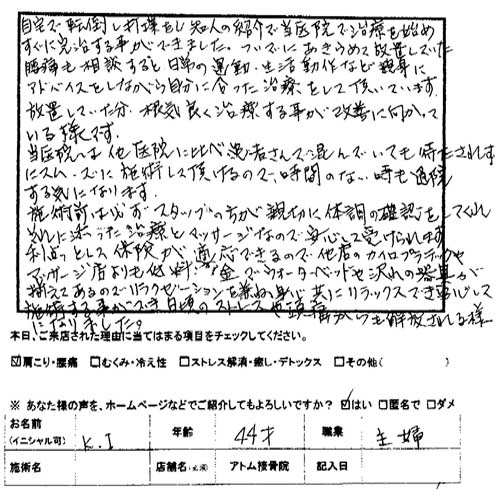 自宅で転倒し打撲をし知人の紹介で当医院で治療を始め
すぐに完治する事ができました。ついでにあきらめて放置していた
腰痛も相談すると日常の運動・生活動作など親身に
アドバイスをしながら自分に合った治療をして頂いています。
放置していた分、根気良く治療する事が改善に向かって
いる様です。
当医院は他医院に比べ患者さんで混んでいても待たされず
にスムーズに施術して頂けるので、時間のない時も通院
する気になります。
施術前は必ずスタッフの方が親切に体調の確認をしてくれ
それに添った治療とマッサージなので安心して受けられます
利点として保険が適応できるので他店のカイロプラティックや
マッサージ店よりも低料金でウォーターベッドや沢山の器具が
揃えてあるのでリラクゼーションを兼ね身心共にリラックスでき安心して
施術する事ができ日頃のストレスや頭痛からも解放される様
になりました。
本日、ご来店された理由に当てはまる項目をチェックしてください。
☑肩こり・腰痛 □むくみ・冷え性 □ストレス解消・癒し・デトックス □その他( )
※ あなた様の声を、ホームページなどでご紹介してもよろしいですか？ ☑はい □匿名で □ダメ
お名前 (イニシャル可) K.I 年齢 44才 職業 主婦
施術名 店舗名 アトム接骨院 記入日